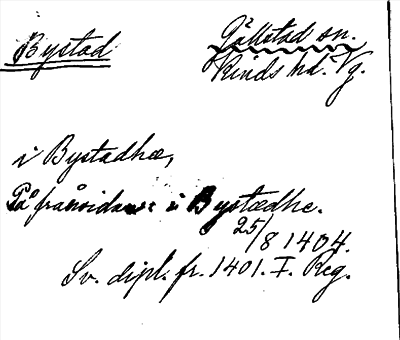 Bystad
Gällstad sn.
Kinds hd. Vg.
i Bystadhæ,
På i Bystædhe.
25/8 1404.
Sv. dipl. fr. 1401. I. Reg.